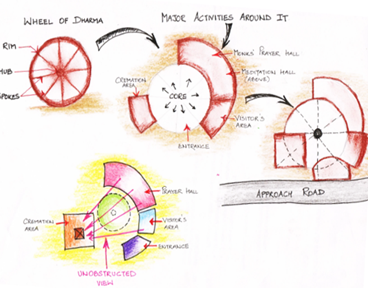 WHEEL OF DHARMA
MAJOR ACTIVITIES AROUND IT
RIM
HUB
SPOKES
MONKS' PRAYER HALL
MEDITATION HALL
(ABOVE)
CREMATION
AREA
CORE
VISITOR'S
AREA
ENTRANCE
APPROACH ROAD
PRAYER HALL
CREMATION
AREA
VISITOR'S
AREA
ENTRANCE
UNOBSTRUCTED
VIEW